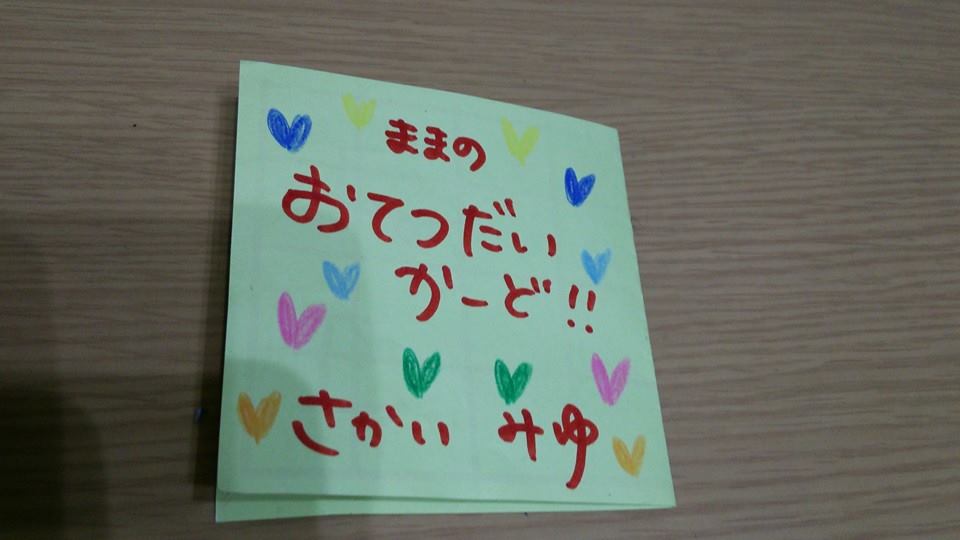 ままの
おてつだい
かーど!!
さかい みゆ